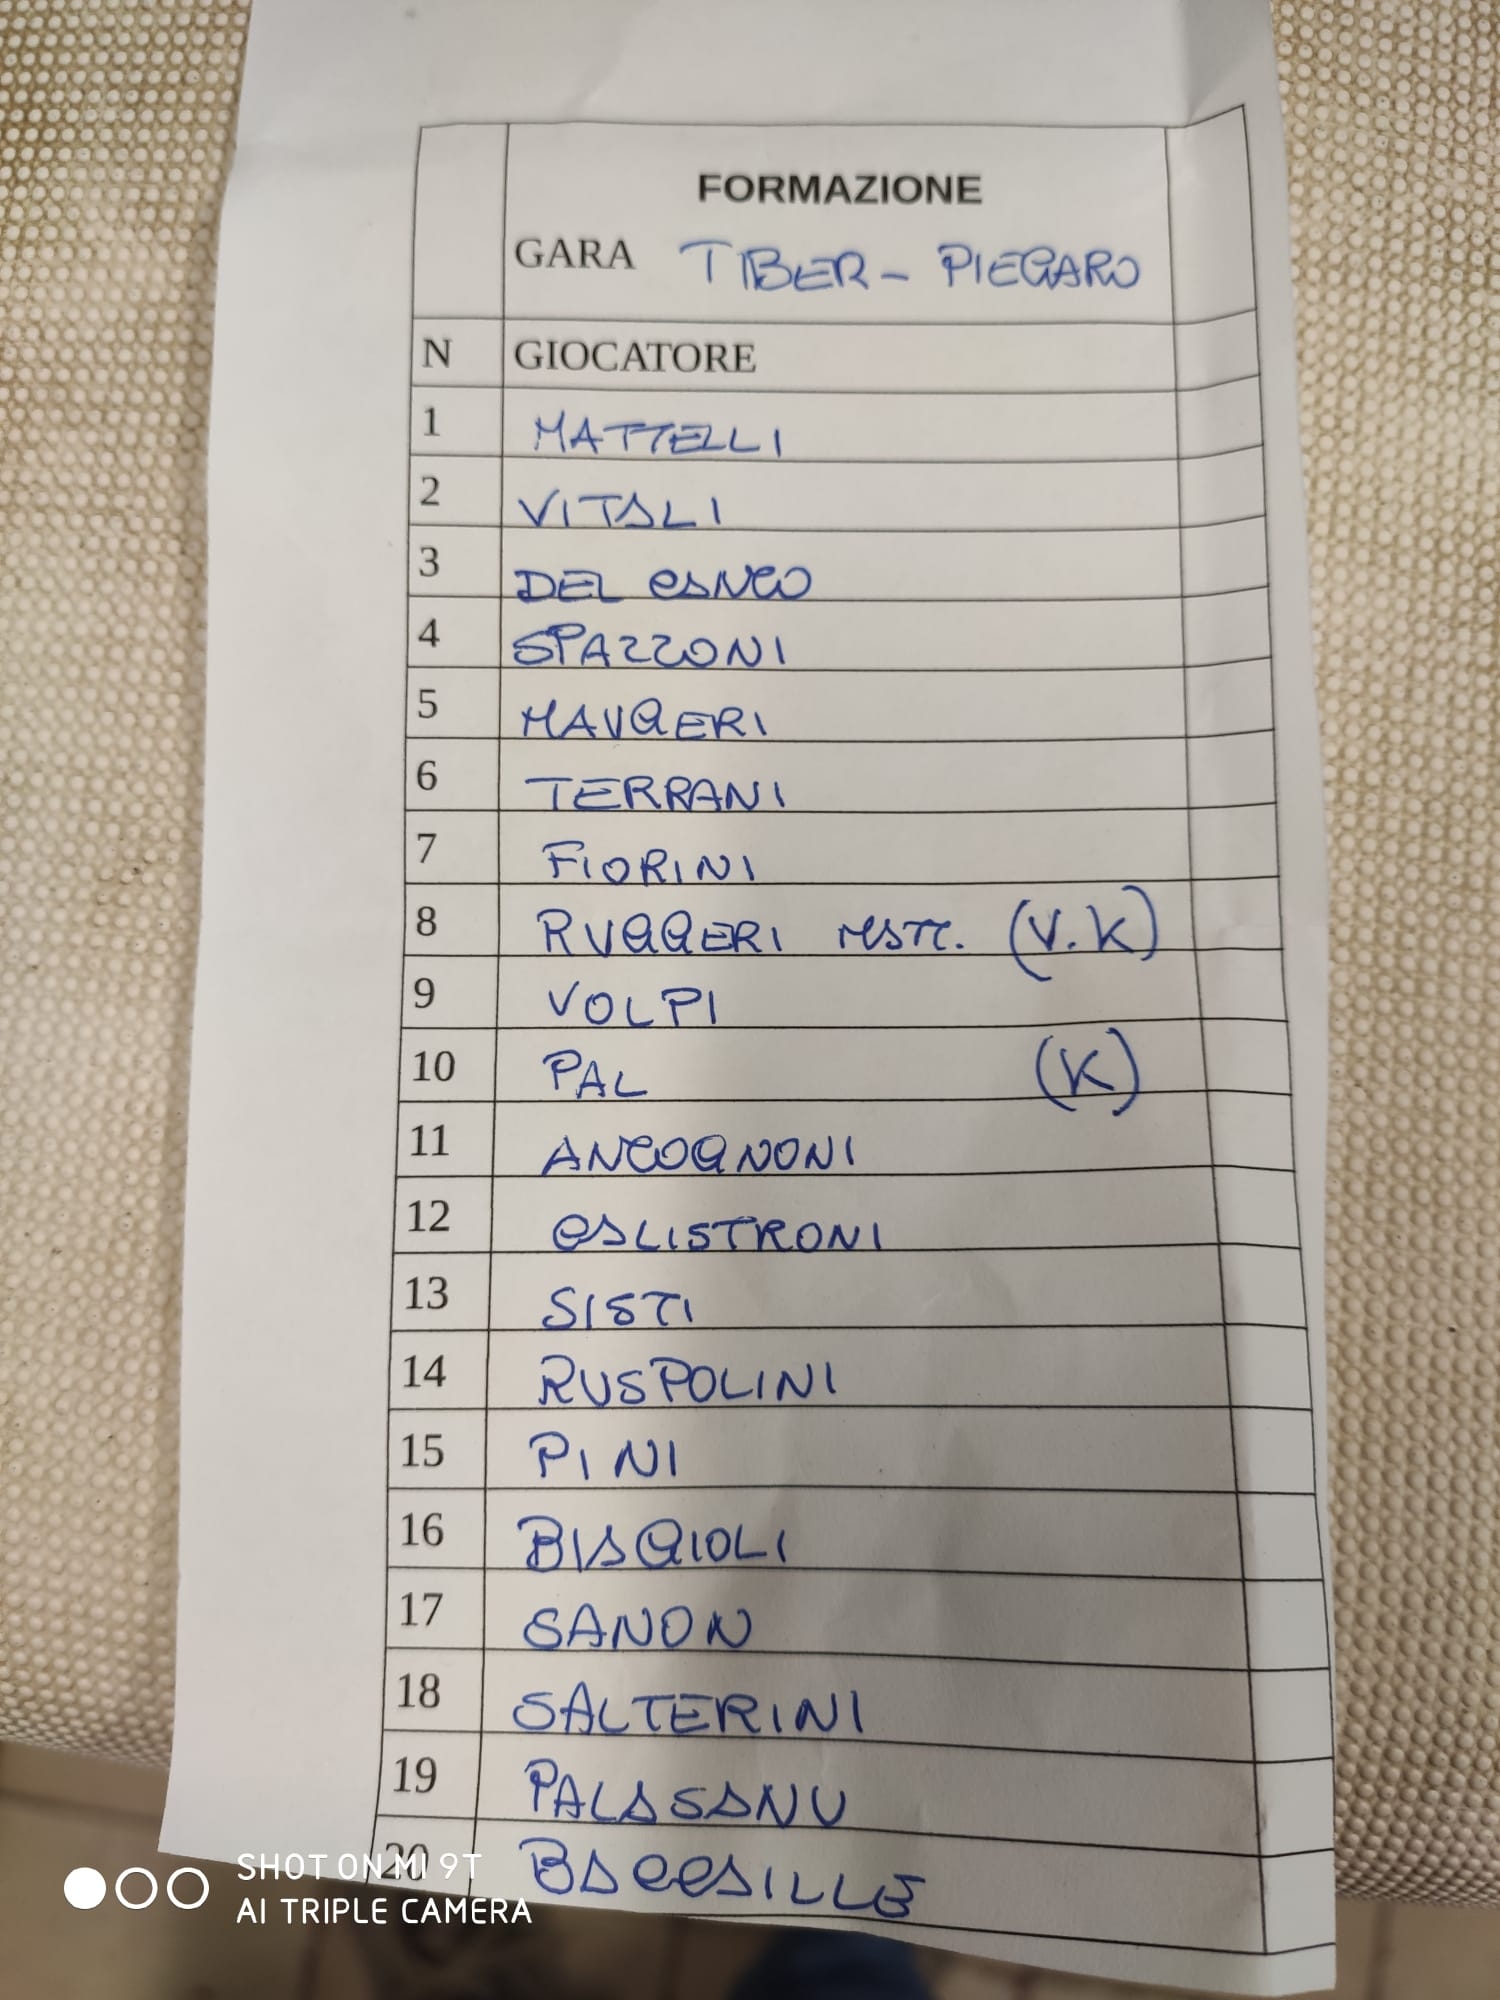 FORMAZIONE
GARA TIBER - PIEGARO
N GIOCATORE
1 MATTELLI
2 VITALI
3 DEL CANCO
4 SPAZZONI
5 MAUGERI
6 TERRANI
7 FIORINI
8 RUGGERI (V.K)
9 VOLPI
10 PAL (K)
11 ANCOGNONI
12 CALISTRONI
13 SISTI
14 RUSPOLINI
15 PINI
16 BIAGIOLI
17 SANON
18 SALTERINI
19 PALASANU
20 BACCAILLE
SHOT ON MI 9T
AI TRIPLE CAMERA